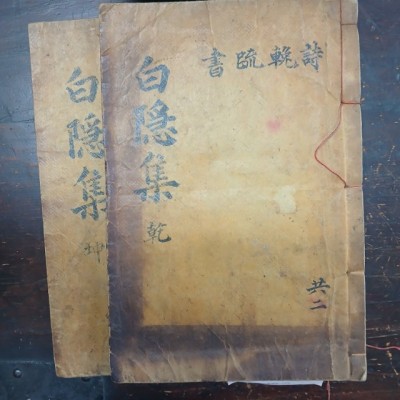 詩輓疏書
共二
白隠集 乾
白隠集 坤